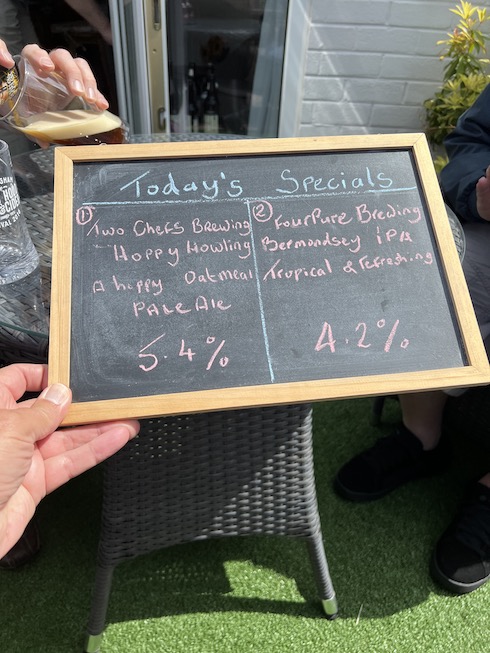 Today's Specials
① Two Chefs Brewing
Hoppy Howling
A hoppy Oatmeal
Pale Ale
5.4%
② FourPure Brewing
Bermondsey iPA
Tropical & refreshing
4.2%